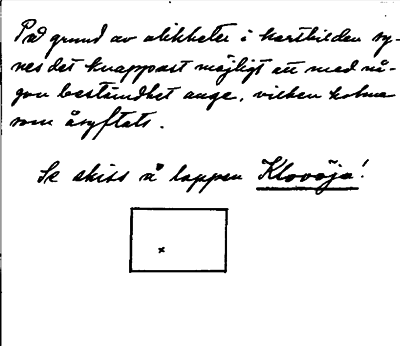 På grund av olikheter i kartbilden sy-
nes det knappast möjligt att med nå-
gon bestämdhet ange, vilken holme
som åsyftats.
Se skiss å lappen Klovöja!